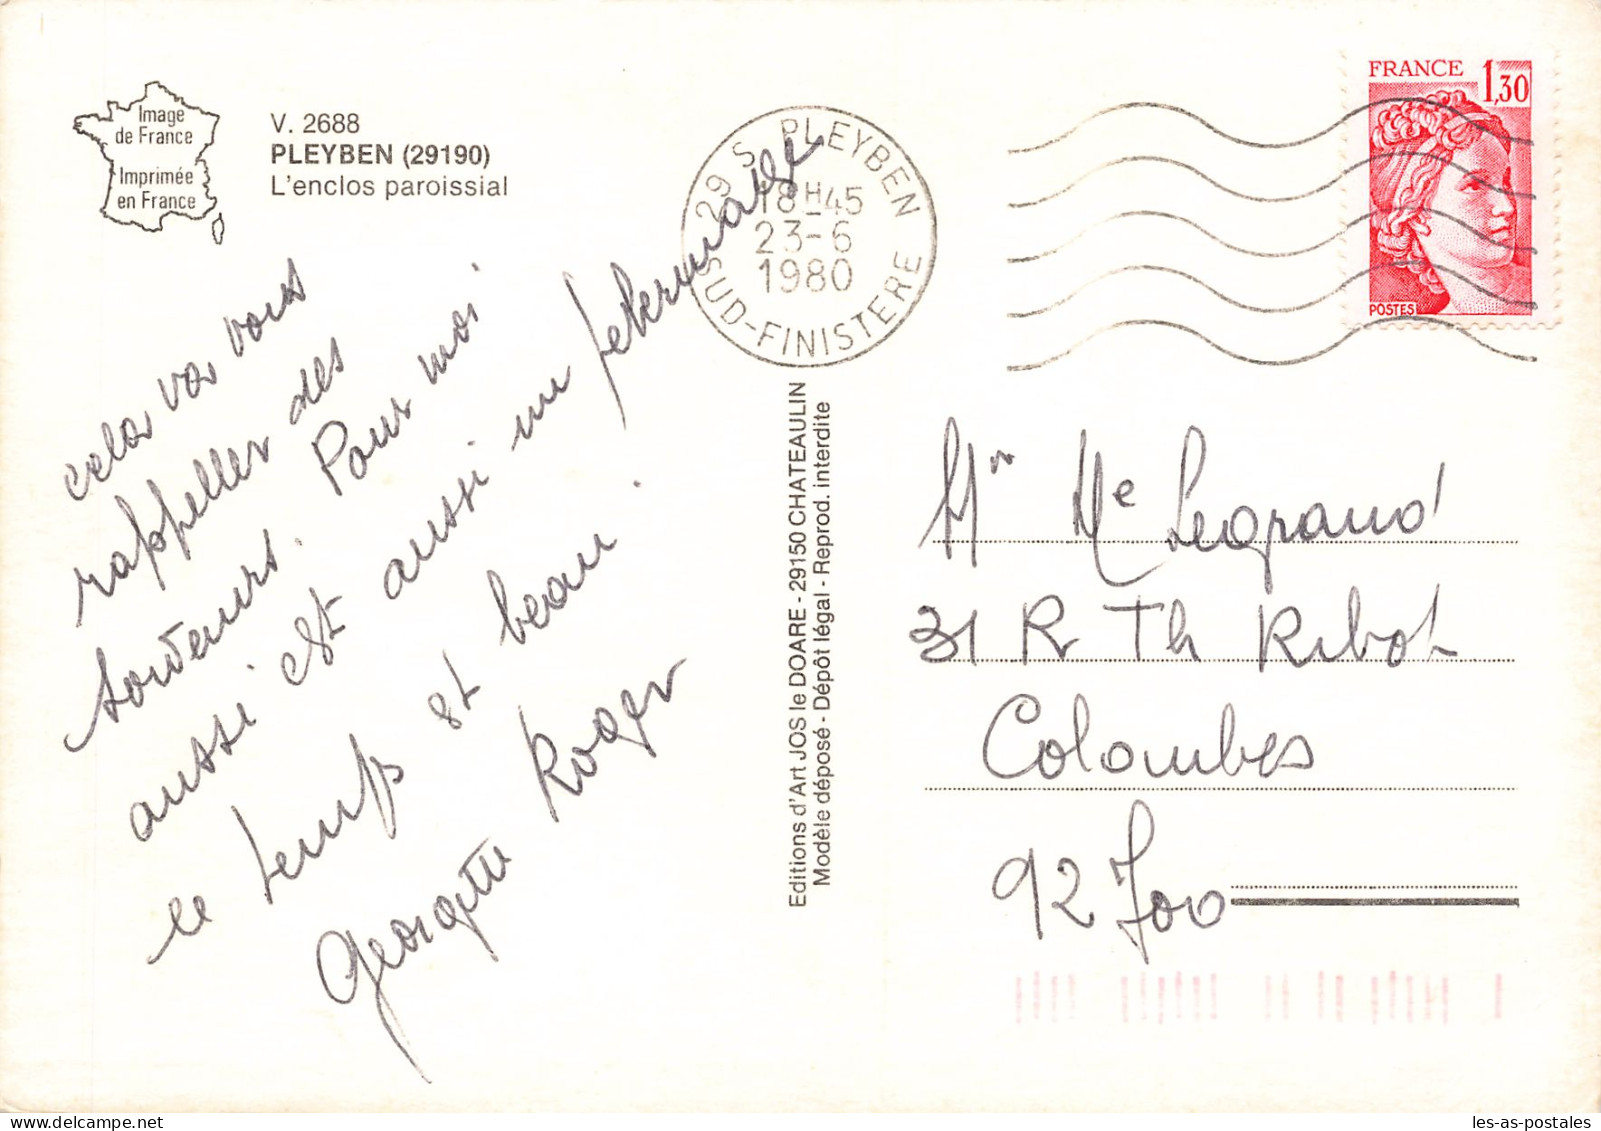 Image
de France
Imprimée
en France
V. 2688
PLEYBEN (29190)
L'enclos paroissial
S. PLEYBEN
18H45
23-6
1980
29 SUD-FINISTERE
FRANCE 1,30
POSTES
cela va vous
rappeller des
souvenirs. Pour moi
aussi est aussi un pelerinage
le temps est beau.
Georgette Roger
Editions d'Art JOS le DOARE - 29150 CHATEAULIN
Modèle déposé - Dépôt légal - Reprod. interdite
Mr Me Legrand
31 R Th Ribot
Colombes
92 700
les-as-postales